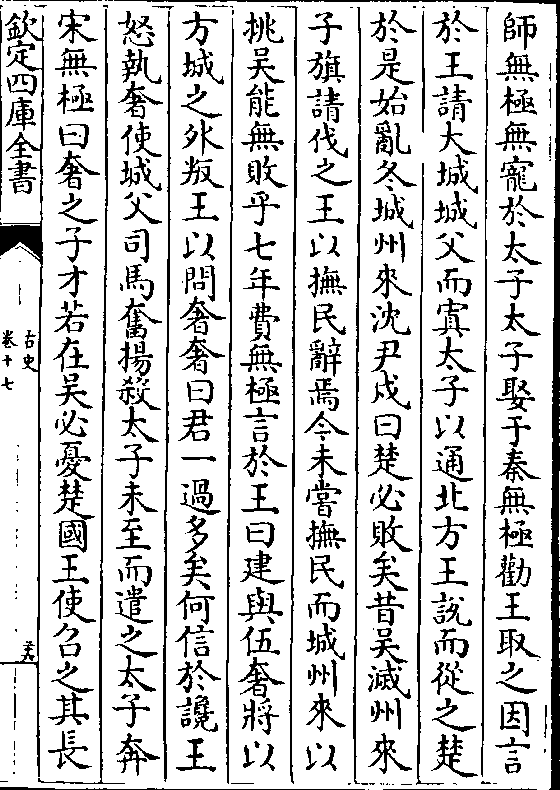 師無極無寵於太子太子娶于秦無極勸王取之因言
於王請大城城父而寘太子以通北方王說而從之楚
於是始亂冬城州來沈尹戍曰楚必敗矣昔吳滅州來
子旗請伐之王以撫民辭焉今未嘗撫民而城州來以
挑吳能無敗乎七年費無極言於王曰建與伍奢將以
方城之外叛王以問奢奢曰君一過多矣何信於讒王
怒執奢使城父司馬奮揚殺太子未至而遣之太子奔
宋無極曰奢之子才若在吳必憂楚國王使召之其長
欽定四庫全書
古史
卷十七